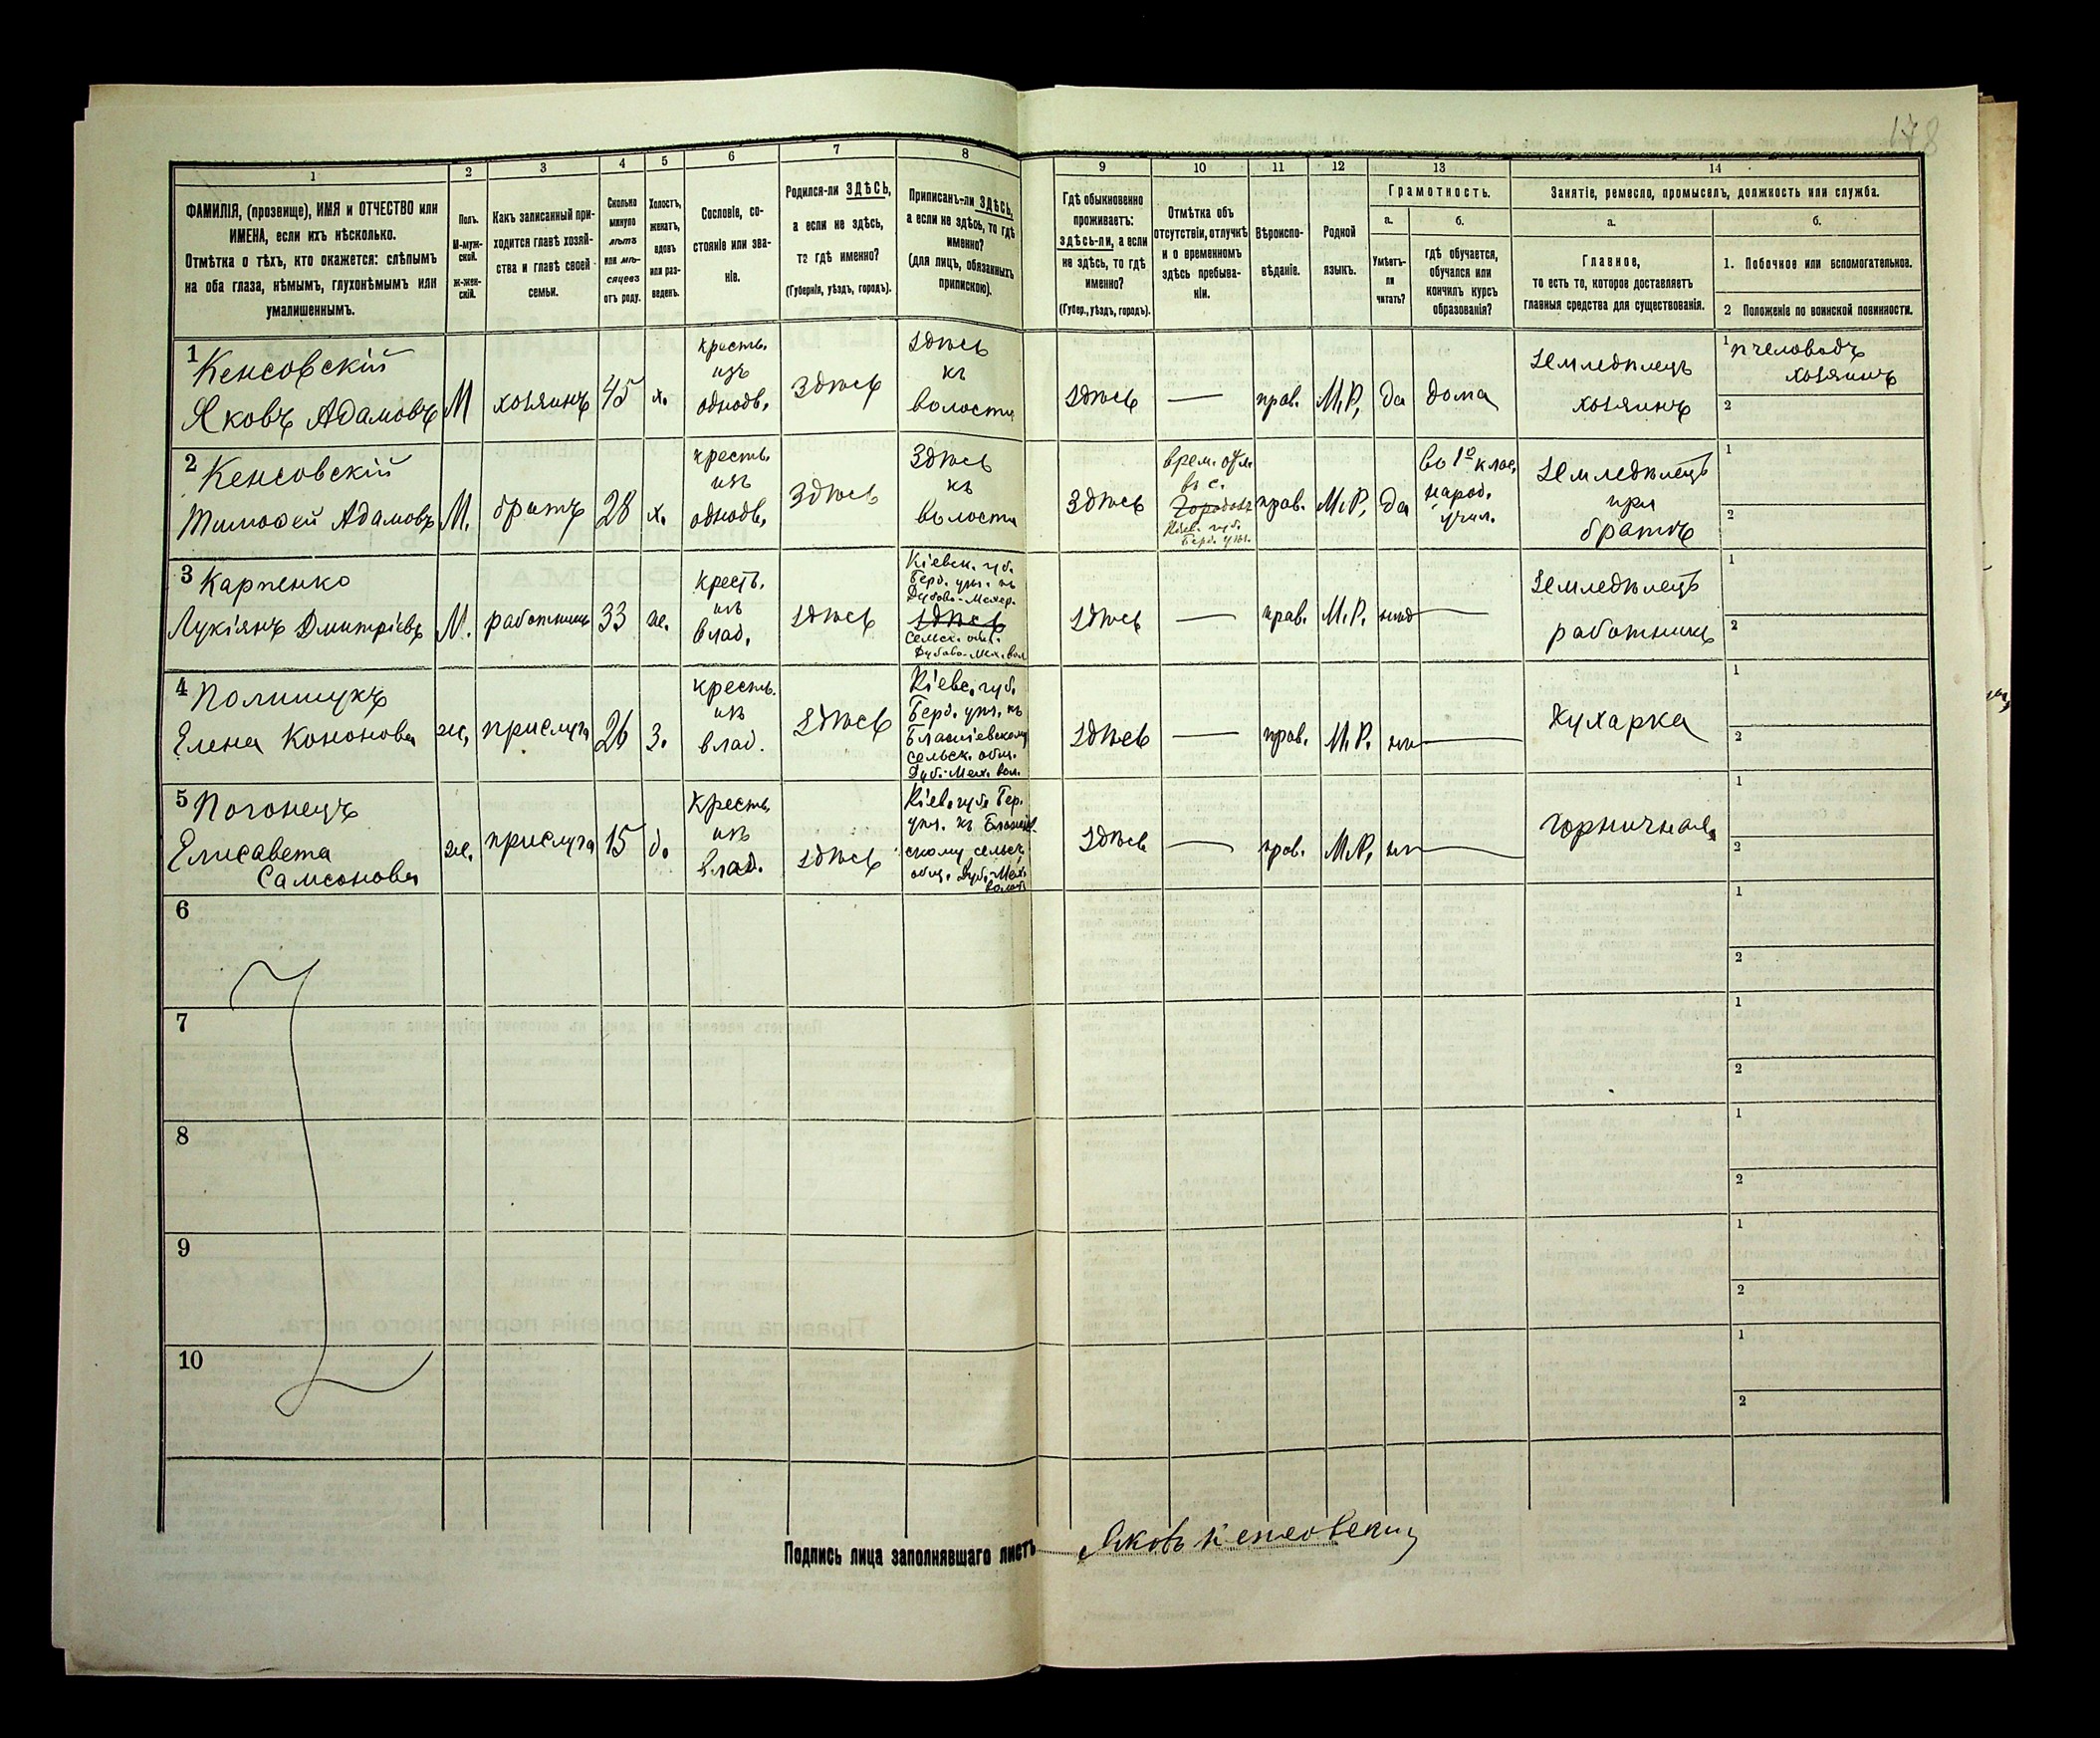 178
1
2
3
4
5
6
7
8
9
10
11
12
13
14
ФАМИЛІЯ, (прозвище), ИМЯ и ОТЧЕСТВО или
ИМЕНА, если ихъ нѣсколько.
Отмѣтка о тѣхъ, кто окажется: слѣпымъ
на оба глаза, нѣмымъ, глухонѣмымъ или
умалишеннымъ.
Полъ.
М-муж-
ской.
ж-жен-
скій.
Какъ записанный при-
ходится главѣ хозяй-
ства и главѣ своей
семьи.
Сколько
минуло
лѣтъ
или мѣ-
сяцевъ
отъ роду.
Холостъ,
женатъ,
вдовъ
или раз-
веденъ.
Сословіе, со-
стояніе или зва-
ніе.
Родился-ли ЗДѢСЬ,
а если не здѣсь,
то гдѣ именно?
(Губернія, уѣздъ, городъ).
Приписанъ-ли ЗДѢСЬ,
а если не здѣсь, то гдѣ
именно?
(для лицъ, обязанныхъ
припискою).
Гдѣ обыкновенно
проживаетъ:
здѣсь-ли, а если
не здѣсь, то гдѣ
именно?
(Губер., уѣздъ, городъ).
Отмѣтка объ
отсутствіи, отлучкѣ
и о временномъ
здѣсь пребыва-
ніи.
Вѣроиспо-
вѣданіе.
Родной
языкъ.
Грамотность.
а.
б.
Умѣетъ-
ли
читать?
гдѣ обучается,
обучался или
кончилъ курсъ
образованія?
Занятіе, ремесло, промыселъ, должность или служба.
а.
б.
Главное,
то есть то, которое доставляетъ
главныя средства для существованія.
1. Побочное или вспомогательное.
2 Положеніе по воинской повинности.
1 Кенсовскій
Яковъ Адамовъ
М
хозяинъ
45
х.
крестъ.
изъ
однодв.
Здѣсь
Здѣсь
къ
волости
Здѣсь
—
прав.
М.Р.
да
дома
Земледѣлецъ
хозяинъ
1 пчеловодъ
хозяинъ
2
2 Кенсовскій
Тимофей Адамовъ
М.
братъ
28
х.
крестъ.
изъ
однодв.
Здѣсь
Здѣсь
къ
волости
Здѣсь
врем. отл.
въ с.
Кіев. губ.
Берд. уѣз.
прав.
М.Р.
да
во 1º клас.
народ.
учил.
Земледѣлецъ
при
братѣ
1
2
3 Карпенко
Лукіянъ Дмитріевъ
М.
работникъ
33
ж.
крест.
изъ
влад.
Здѣсь
Кіевск. губ.
Берд. уѣз. къ
Дубово-Мехер.
Здѣсь
сельск. общ.
Дубово-Мех. вол
Здѣсь
—
прав.
М.Р.
—
Земледѣлецъ
работникъ
1
2
4 Полищукъ
Елена Кононова
ж.
прислуга
26
з.
крестъ.
изъ
влад.
Здѣсь
Кіевс. губ.
Берд. уѣз. къ
сельск. общ.
Дуб.-Мех. вол.
Здѣсь
—
прав.
М.Р.
—
Кухарка
1
2
5 Погонецъ
Елисавета
Самсонова
ж.
прислуга
15
д.
крестъ.
изъ
влад.
Здѣсь
Кіев. губ. Бер.
уѣз. къ
скому сельск.
общ. Дуб.-Мех.
волос.
Здѣсь
—
прав.
М.Р.
—
горничная
1
2
6
1
2
7
1
2
8
1
2
9
1
2
10
1
2
Подпись лица заполнявшаго листъ
Яковъ Кенсовскій